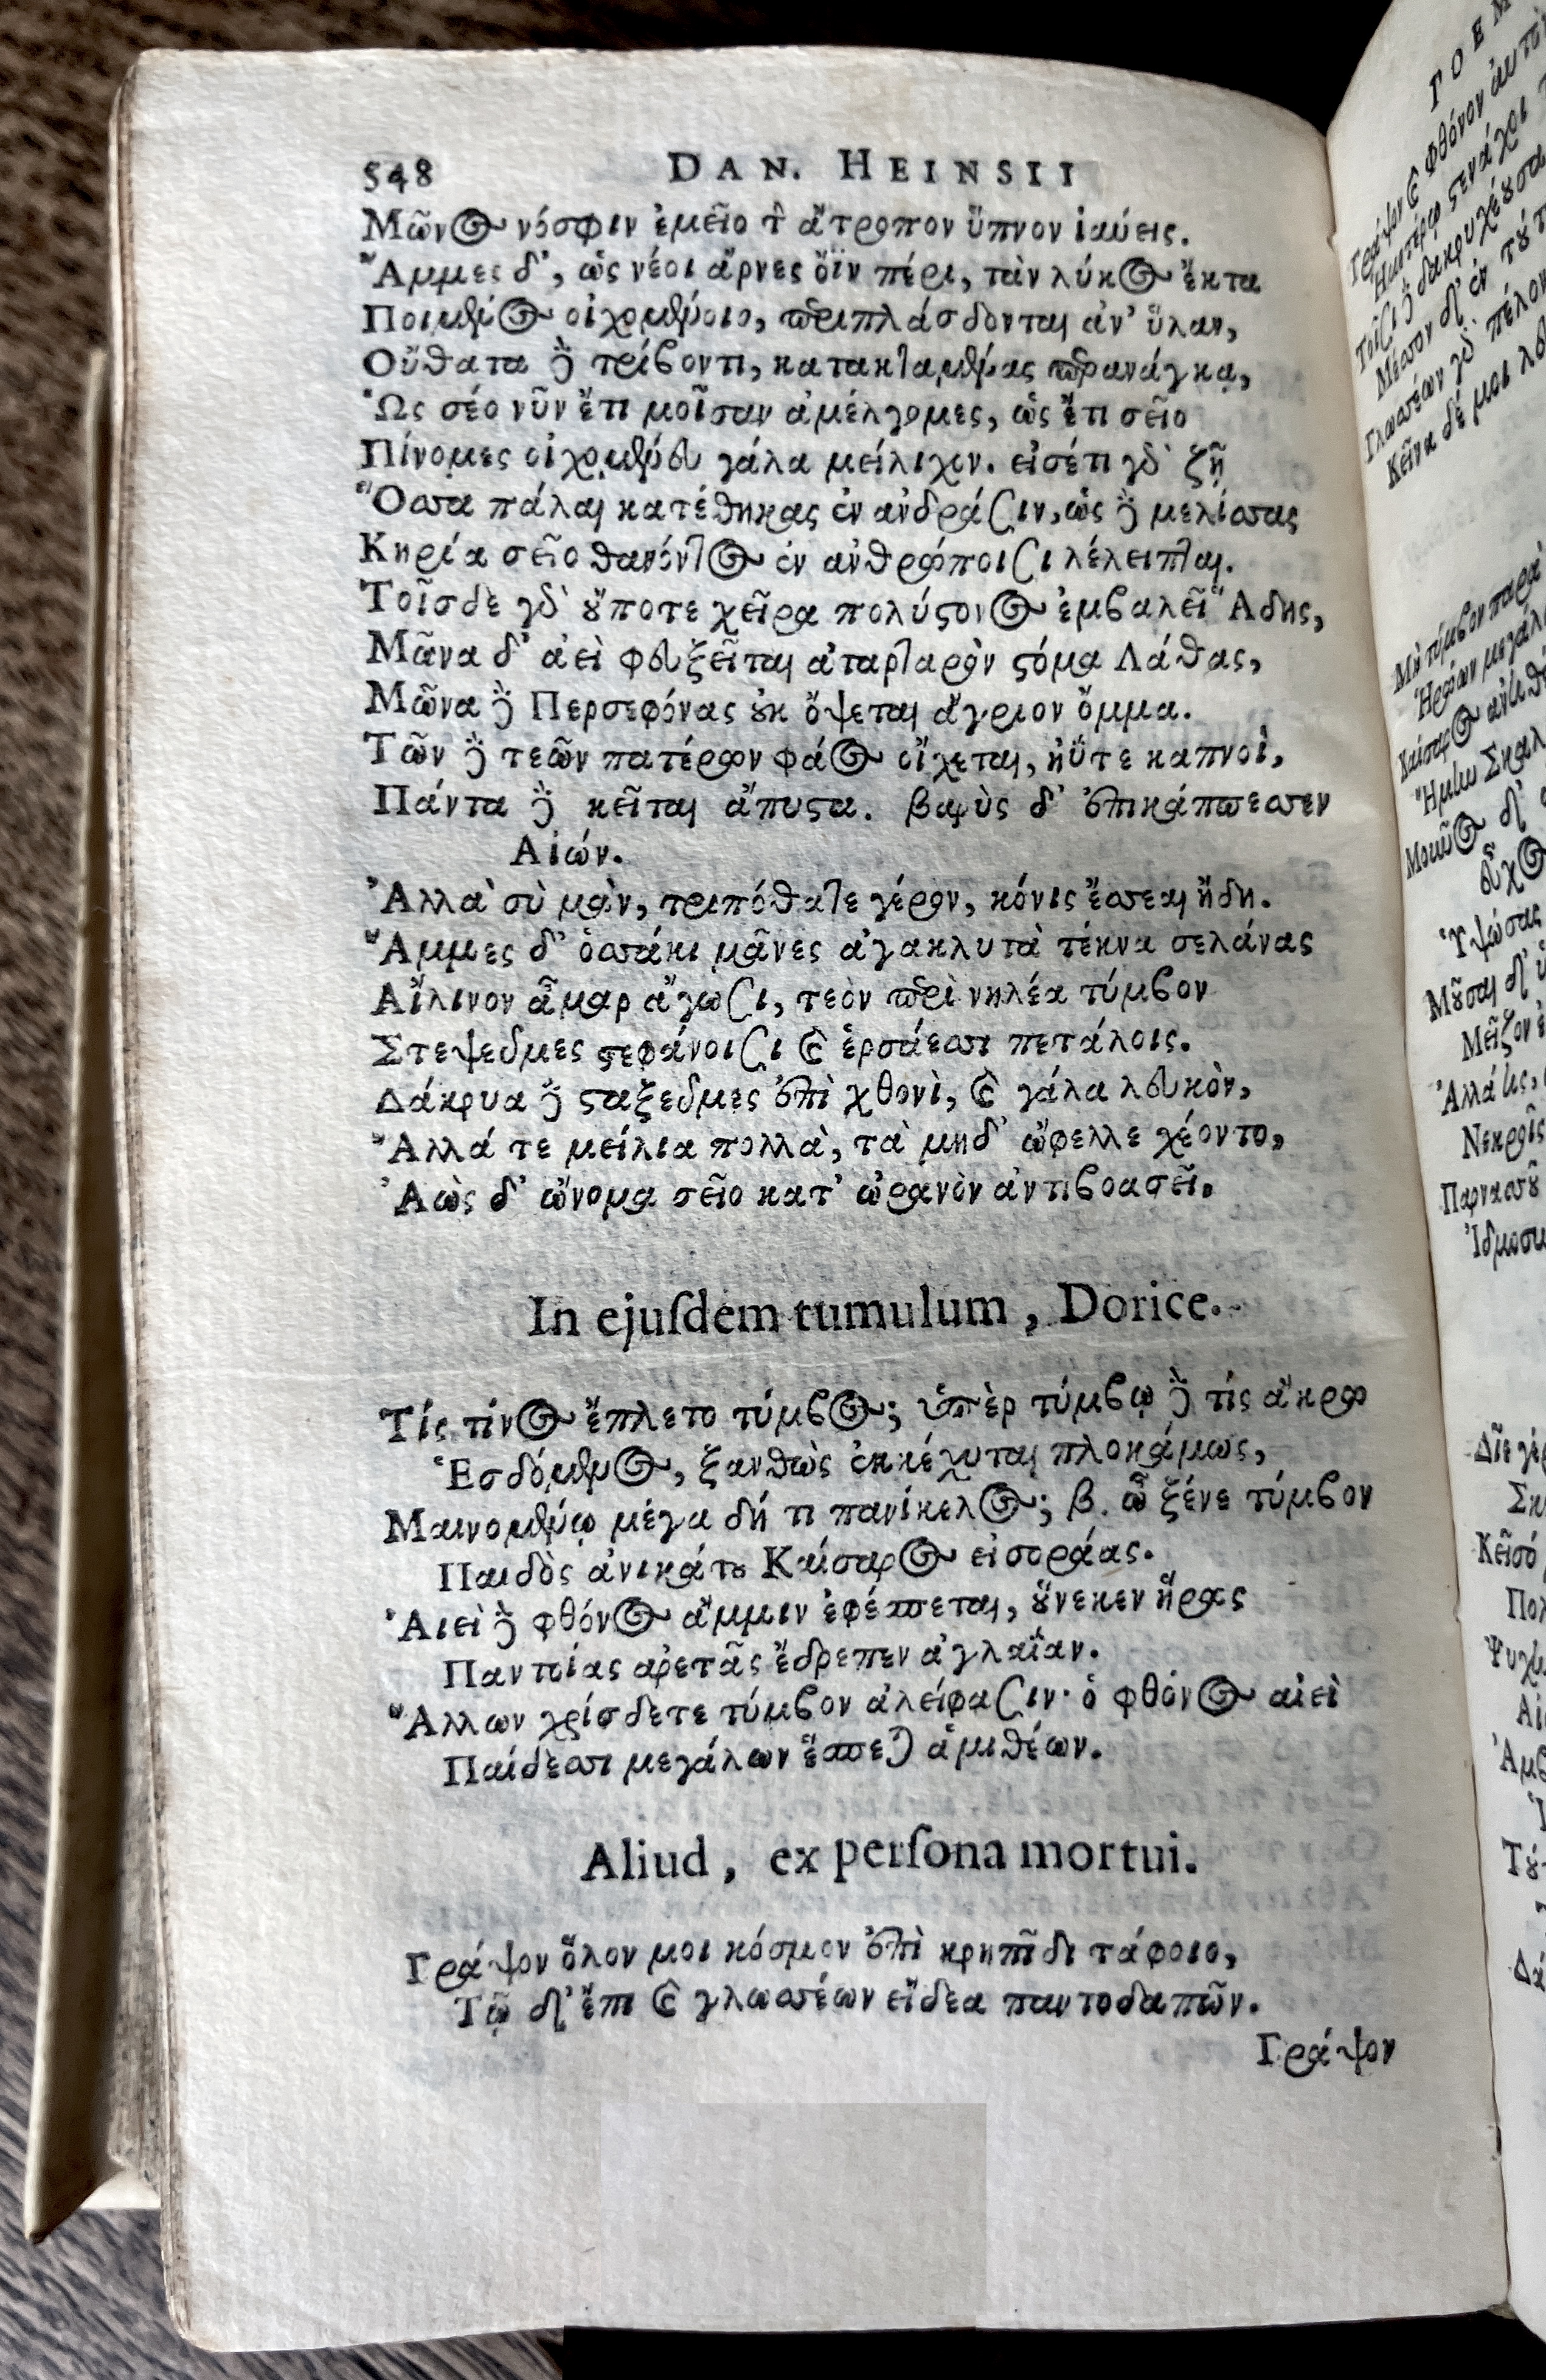 548 DAN. HEINSII
Μῶνος νόσφιν ἐμεῖο τὸν ἄτροπον ὕπνον ἰαύεις.
Ἄμμες δ', ὡς νέοι ἄρνες ὄϊν πέρι, τὰν λύκος ἔκτα
Ποιμένος οἰχομένοιο, περιπλάσδονται ἀν' ὕλαν,
Οὔθατα δὲ τρίβοντι, κατακταμένας περ ἀνάγκᾳ,
Ὣς σέο νῦν ἔτι μοῖσαν ἀμέλγομες, ὡς ἔτι σεῖο
Πίνομες οἰχομένευ γάλα μείλιχον. εἰσέτι γὰρ ζῆ
Ὅσσα πάλαι κατέθηκας ἐν ἀνδράσιν, ὡς δὲ μελίσσας
Κηρία σεῖο θανόντος ἐν ἀνθρώποισι λέλειπται.
Τοῖσδε γὰρ οὔποτε χεῖρα πολύστονος ἐμβαλεῖ Ἅδης,
Μῶνα δ' ἀεὶ φευξεῖται ἀταρταρὸν στόμα Λάθας,
Μῶνα δὲ Περσεφόνας οὐκ ὄψεται ἄγριον ὄμμα.
Τῶν δὲ τεῶν πατέρων φάος οἴχεται, ἠΰτε καπνοὶ,
Πάντα δὲ κεῖται ἄπυστα. βαρὺς δ' ἐπικάππεσεν
Αἰών.
Ἀλλὰ σὺ μὰν, τριπόθατε γέρον, κόνις ἔσσεαι ἤδη.
Ἄμμες δ' ὁσσάκι μᾶνες ἀγακλυτὰ τέκνα σελάνας
Αἴλινον ἆμαρ ἄγωσι, τεὸν περὶ νηλέα τύμβον
Στεψεῦμες στεφάνοισι καὶ ἑρσάεσσι πετάλοις.
Δάκρυα δὲ σταξεῦμες ἐπὶ χθονὶ, καὶ γάλα λευκὸν,
Ἄλλά τε μείλια πολλὰ, τὰ μηδ' ὤφελλε χέοντο,
Ἀὼς δ' ὤνομα σεῖο κατ' ὠρανὸν ἀντιβοασεῖ.
In ejuſdem tumulum, Dorice.
Τίς τίνος ἔπλετο τύμβος; ὑπὲρ τύμβῳ δὲ τίς ἄκρω
Ἑσδόμενος, ξανθὼς ἐκκέχυται πλοκάμως,
Μαινομένῳ μέγα δή τι πανίκελος; β. ὦ ξένε τύμβον
Παιδὸς ἀνικάτου Καίσαρος εἰσοράας.
Ἀιεὶ δὲ φθόνος ἄμμιν ἐφέσπεται, οὕνεκεν ἥρως
Παντοίας ἀρετᾶς ἔδρεπεν ἀγλαΐαν.
Ἄλλων χρίσδετε τύμβον ἀλείφασιν· ὁ φθόνος αἰεὶ
Παίδεσσι μεγάλων ἕσπεται ἁμιθέων.
Aliud, ex perſona mortui.
Γράψον ὅλον μοι κόσμον ἐπὶ κρηπῖδι τάφοιο,
Τῷ δ' ἔπι καὶ γλωσσέων εἴδεα παντοδαπῶν.
Γράψον